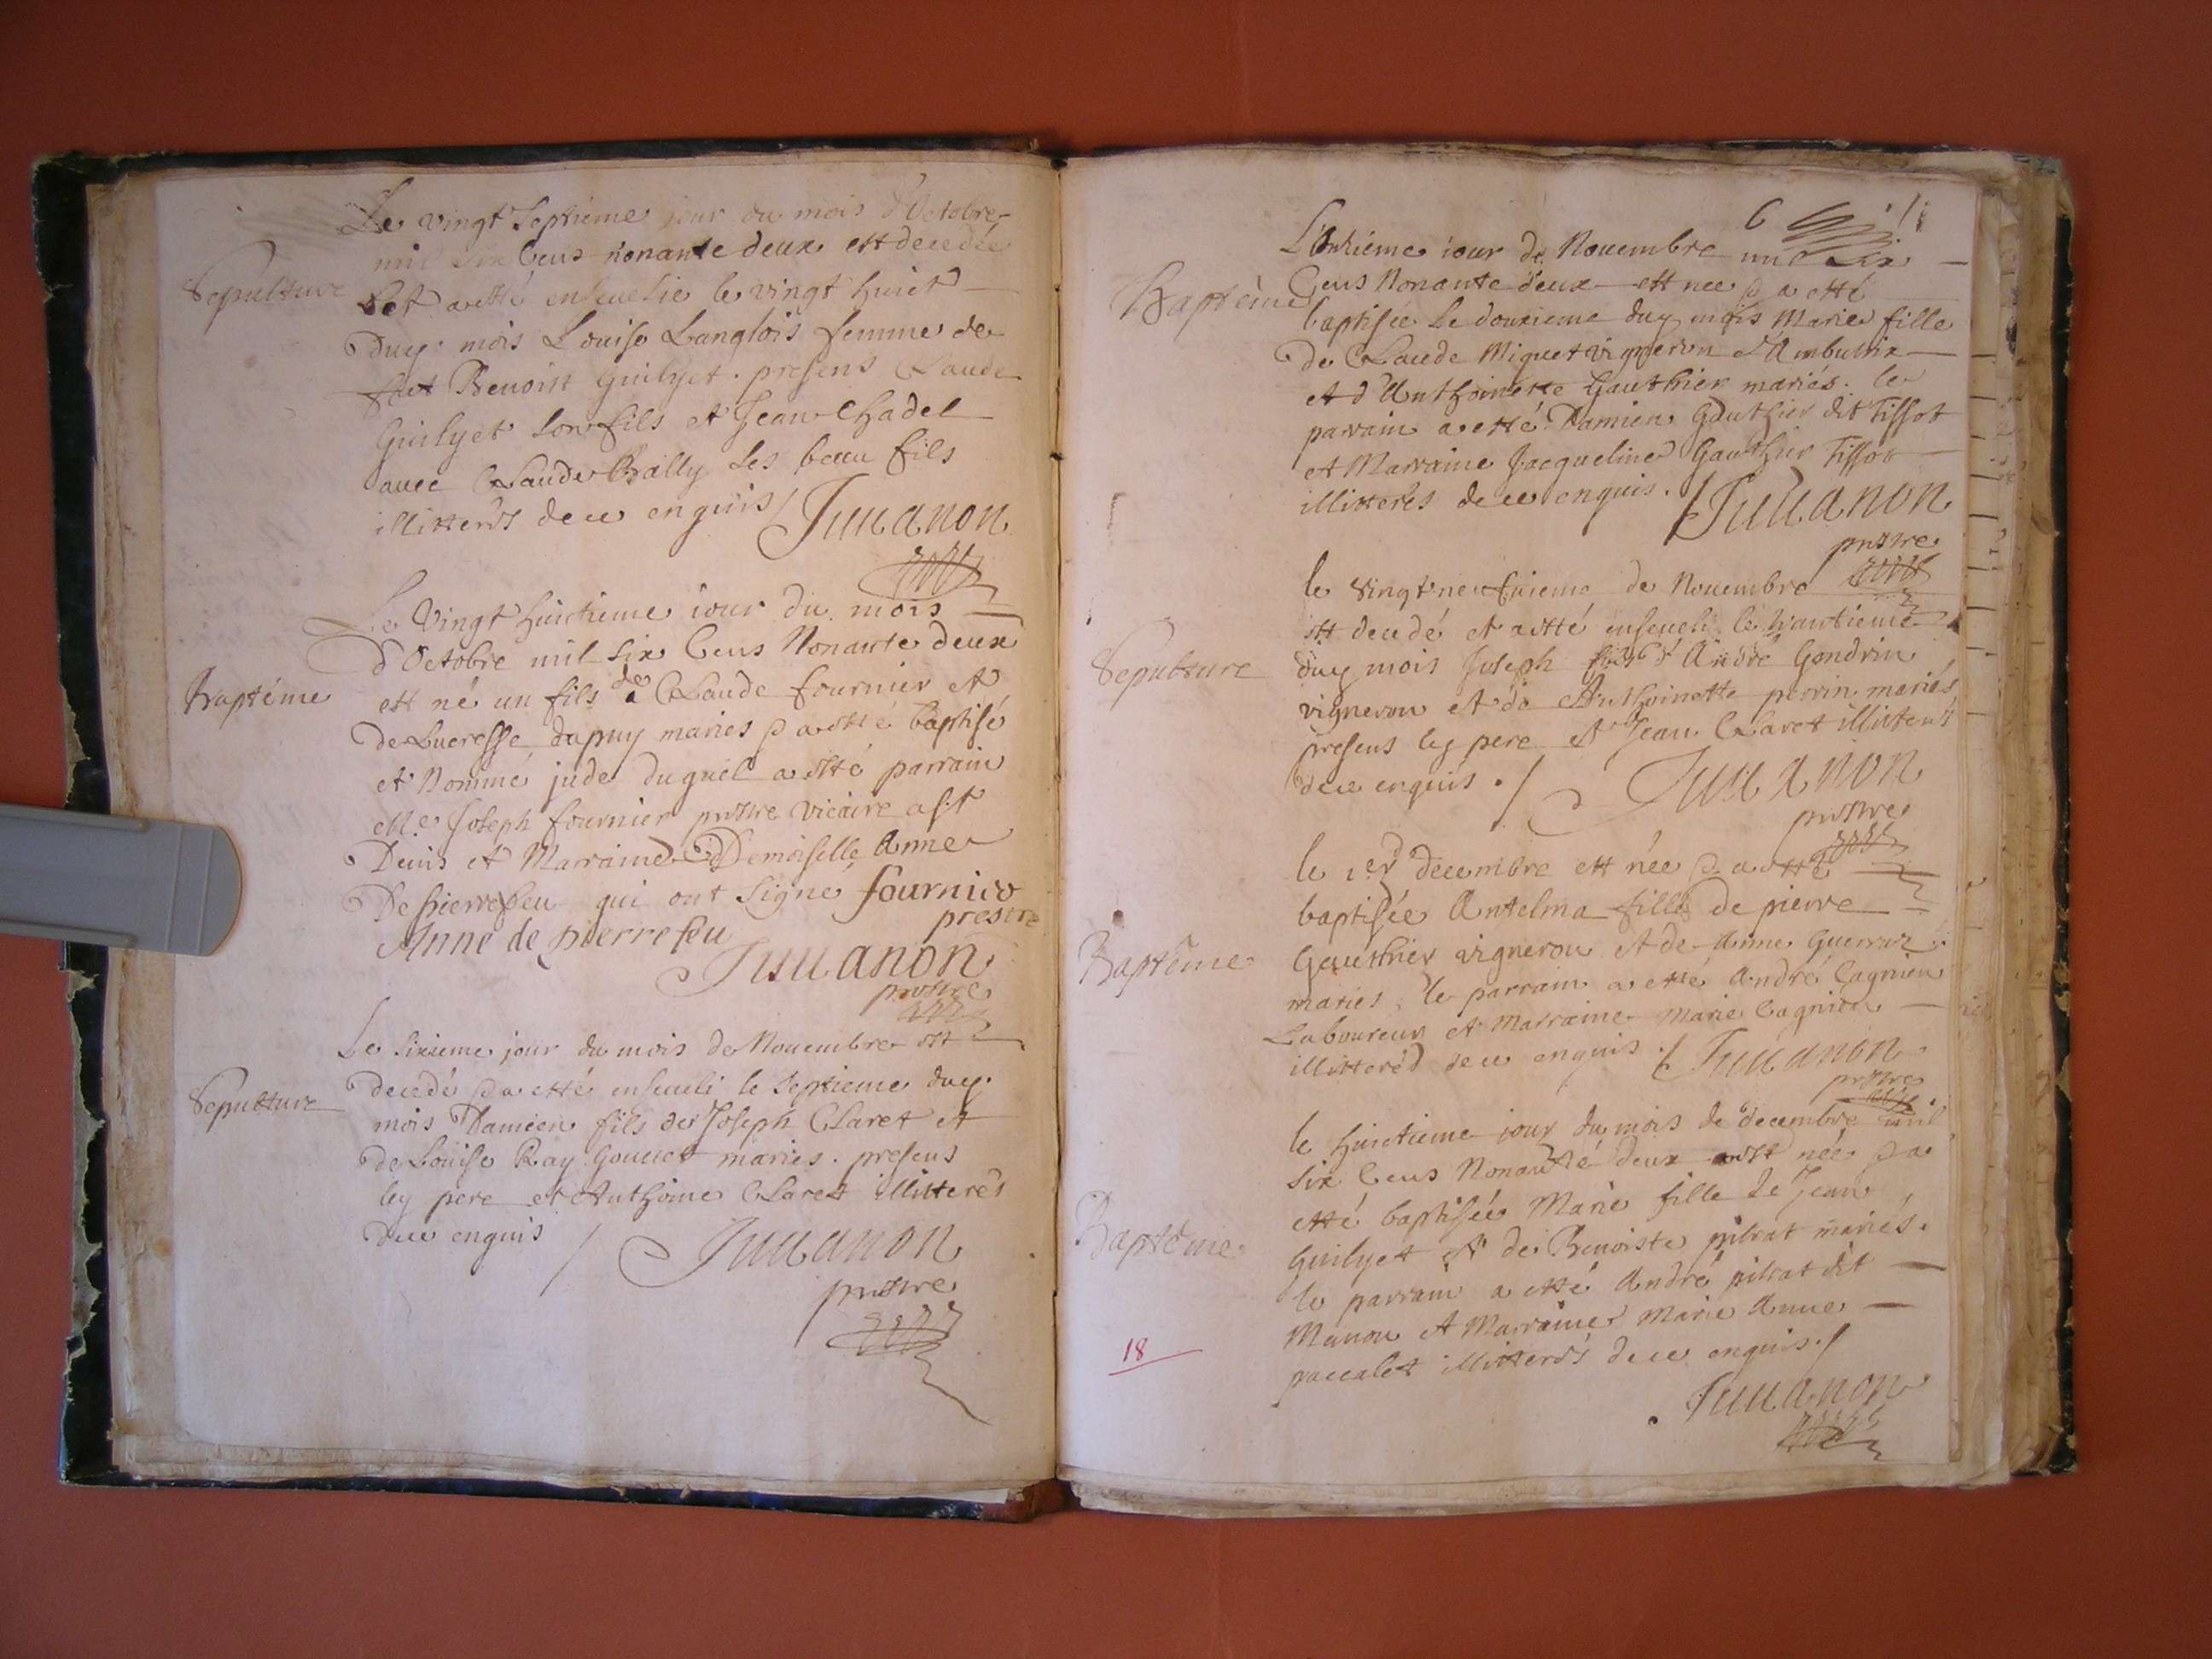 Le vingt Septiéme jour du mois d'Octobre
mil Six Cens nonante deux est decedée
Sepulture
et a etté enseuelie le vingt huict
duy. mois Louise Langlois femme de
Benoist Guilyet. presens Claude
Guilyet son fils et Jean Chadel
auec Claude Bally ses beau fils
illitterés de ce enquis / Juuanon
Le Vingt huictieme iour du mois
d'Octobre mil six Cens Nonante deux
Baptéme
est né un fils de a Claude fournier et
de Lucresse dupuy mariés & a etté baptisé
et Nommé jude duquel a etté parrain
Me. Joseph fournier prestre vicaire a St
Denis et Marraine Demoiselle Anne
De pierrefeu qui ont signé fournier
prestre
Anne de pierrefeu
Juuanon
prestre
Le sixieme jour du mois de Nouembre est
decedé & a etté enseueli le septieme duy.
Sepulture
mois Damien fils de Joseph Claret et
de Louise Ray Gouuet mariés. presens
ley pere et Anthoine Claret illitterés
de ce enquis / Juuanon
prestre
6
L'Onziéme iour de Nouembre mil Six
Cens Nonante deux est nee & a etté
Baptéme
baptisée Le douzieme duy mois Marie fille
de Claude Miguet vigneron d'Ambutrix
et d'Anthoinette Gauthier mariés. le
parrain a etté Damien Gauthier dit Tissot
et Marraine Jacqueline Gauthier Tissot
illitterés de ce enquis. / Juuanon
prestre
le vingt neufuieme de Nouembre
est decedé et a etté enseueli le trantieme
Sepulture
duy mois Joseph fils d'André Gondrin
vigneron et de Anthoinette perrin mariés
presens ley pere et Jean Claret illiterés
de ce enquis . / Juuanon
prestre
le 1er decembre est née & a etté
baptisée Antelma fille de pierre
Baptéme
Gauthier vigneron et de Anne Guerraz
mariés, le parrain a etté André Cagnien
Laboureur et Marraine Marie Cagnien
illitterés de ce enquis ./ Juuanon
prestre
le huictieme jour du mois de decembre mil
six Cens Nonante deux est née & a
etté baptisée Marie fille de Jean
Baptéme
Guilyet et de Benoiste pitrat mariés.
le parrain a etté André pitrat dit
Manon et Marraine Marie Anne
paccalet illitterés de ce enquis ./
18
Juuanon